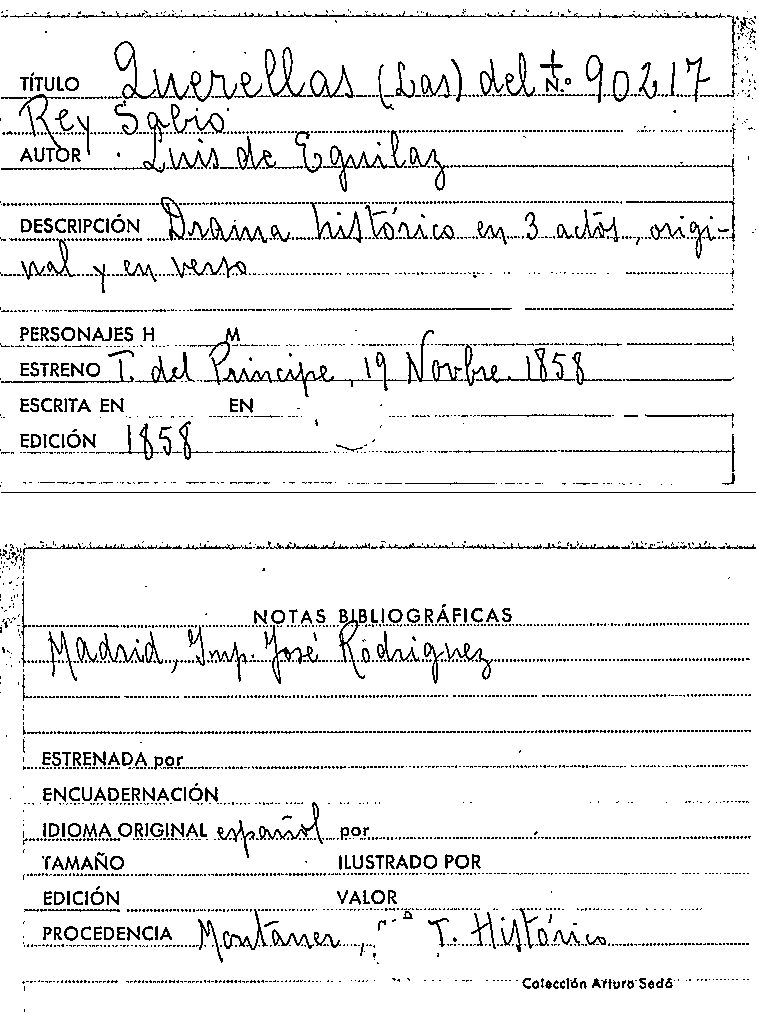 TÍTULO Querellas (Las) del N.º 90217
Rey Sabio
AUTOR Luis de Eguilaz
DESCRIPCIÓN Drama histórico en 3 actos, origi-
nal y en verso
PERSONAJES H M
ESTRENO T. del Principe, 19 Novbre. 1858
ESCRITA EN EN
EDICIÓN 1858
NOTAS BIBLIOGRÁFICAS
Madrid, Imp. José Rodriguez
ESTRENADA por
ENCUADERNACIÓN
IDIOMA ORIGINAL español por
TAMAÑO ILUSTRADO POR
EDICIÓN VALOR
PROCEDENCIA Montaner, T. Histórico
Colección Arturo Sedó